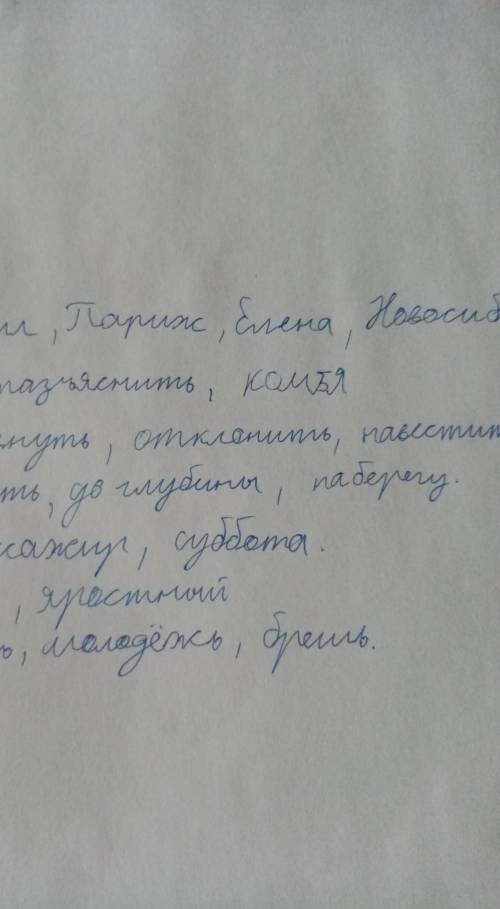 , Париж, Елена, Новосиб
разъяснить, комья
нуть, отклонить, навестит
ть, до глубины, на берегу.
сажир, суббота.
, яростный
ь, молодёжь, брешь.